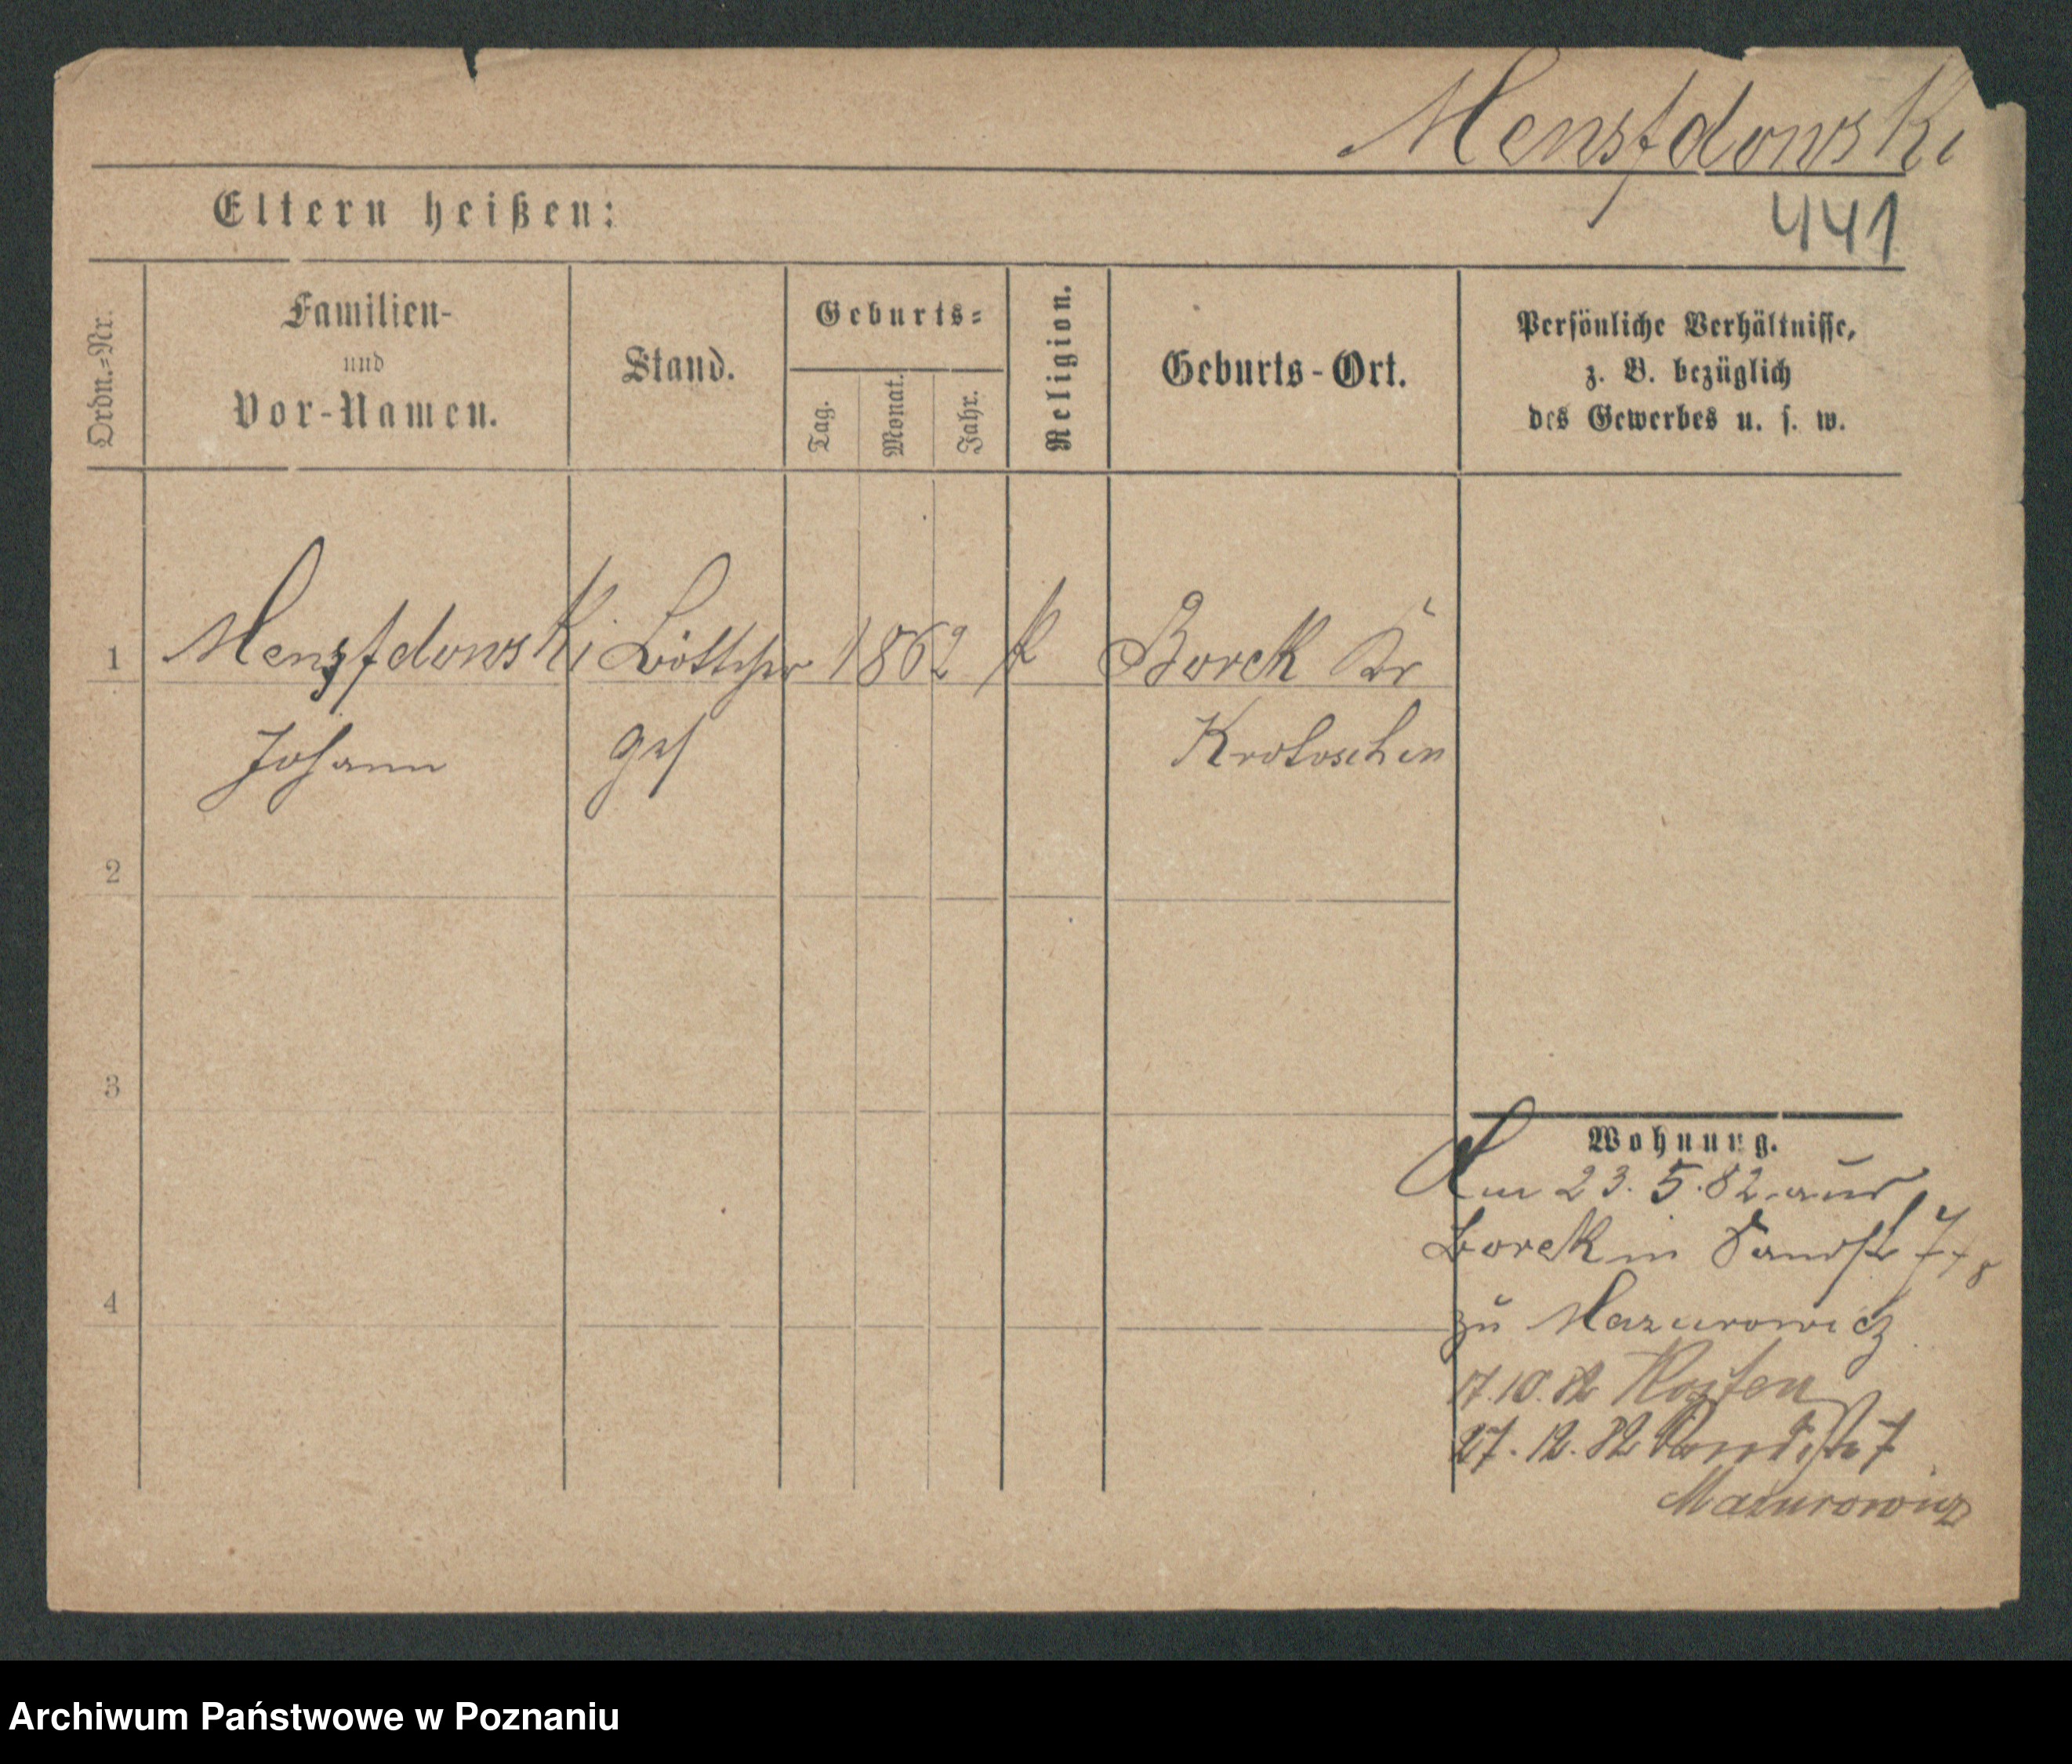 Mensfdowski
Eltern heißen:
441
Ordn.=Nr.
Familien-
und
Vor-Namen.
Stand.
Geburts=
Tag.
Monat.
Jahr.
Religion.
Geburts-Ort.
Persönliche Verhältnisse,
z. B. bezüglich
des Gewerbes u. s. w.
1
Menzfdowski Böttcher 1862 k Borek Kr
Johann ges Krotoschin
2
3
4
Wohnung.
Am 23.5.82 aus
Borek in Sandstr 7/8
zu Mazurowicz
17.10.82 Kosten
27.12.82 Sandstr 7
Mazurowicz
Archiwum Państwowe w Poznaniu